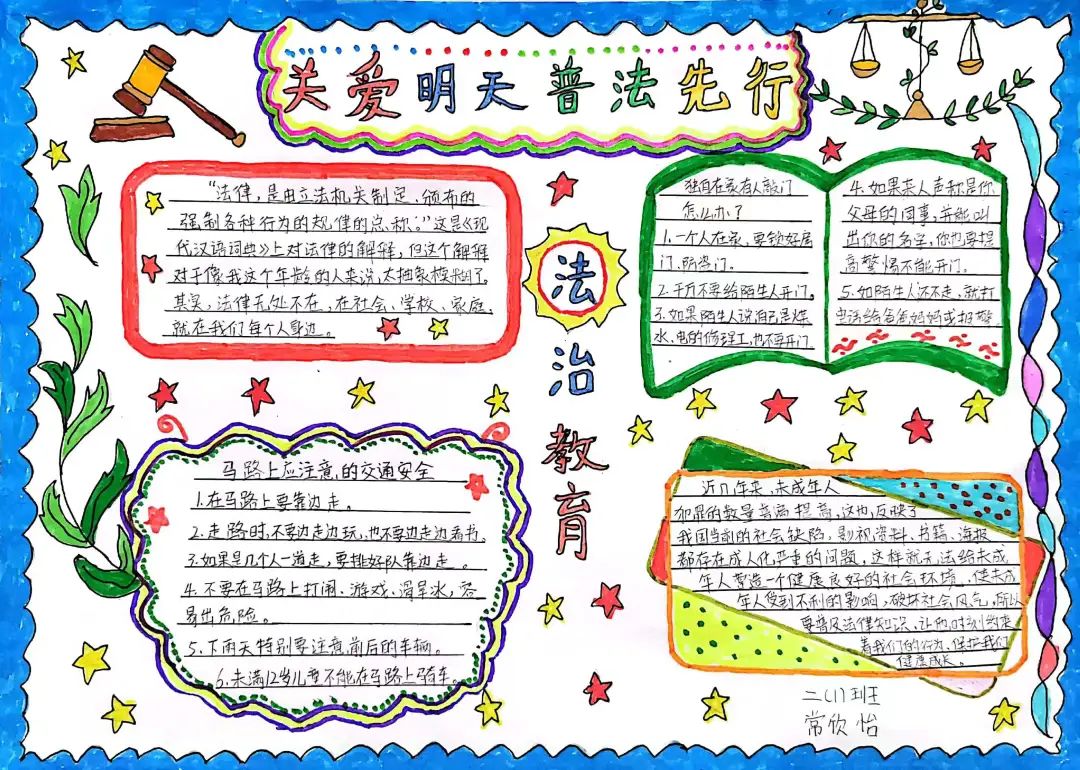 关爱明天普法先行
“法律，是由立法机关制定、颁布的
强制各种行为的规律的总称。”这是《现
代汉语词典》上对法律的解释，但这个解释
对于像我这个年龄的人来说，太抽象模糊了。
其实，法律无处不在，在社会、学校、家庭，
就在我们每个人身边。
法治教育
独自在家有人敲门
怎么办？
1.一个人在家，要锁好居
门、防盗门。
2.千万不要给陌生人开门。
3.如果陌生人说自己是煤
水、电的修理工，也不要开门。
4.如果来人声称是你
父母的同事，并能叫
出你的名字，你也要提
高警惕不能开门。
5.如陌生人还不走，就打
电话给爸爸妈妈或报警
马路上应注意的交通安全
1.在马路上要靠边走。
2.走路时，不要边走边玩，也不要边走边看书。
3.如果是几个人一道走，要排好队靠边走。
4.不要在马路上打闹、游戏、滑旱冰，容
易出危险。
5.下雨天特别要注意前后的车辆。
6.未满12岁儿童不能在马路上骑车。
近几年来，未成年人
犯罪的数量普遍提高，这也反映了
我国当前的社会缺陷，影视资料、书籍、海报
都存在成人化严重的问题，这样就无法给未成
年人营造一个健康良好的社会环境，使未成
年人受到不利的影响，破坏社会风气，所以
要普及法律知识，让他时刻约束
着我们的行为，保护我们
健康成长。
二（1）班
常饮怡